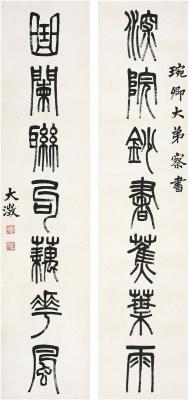 琬卿大弟察書
深院鈔書蕉葉雨
曲闌聯句藕華風
大澂